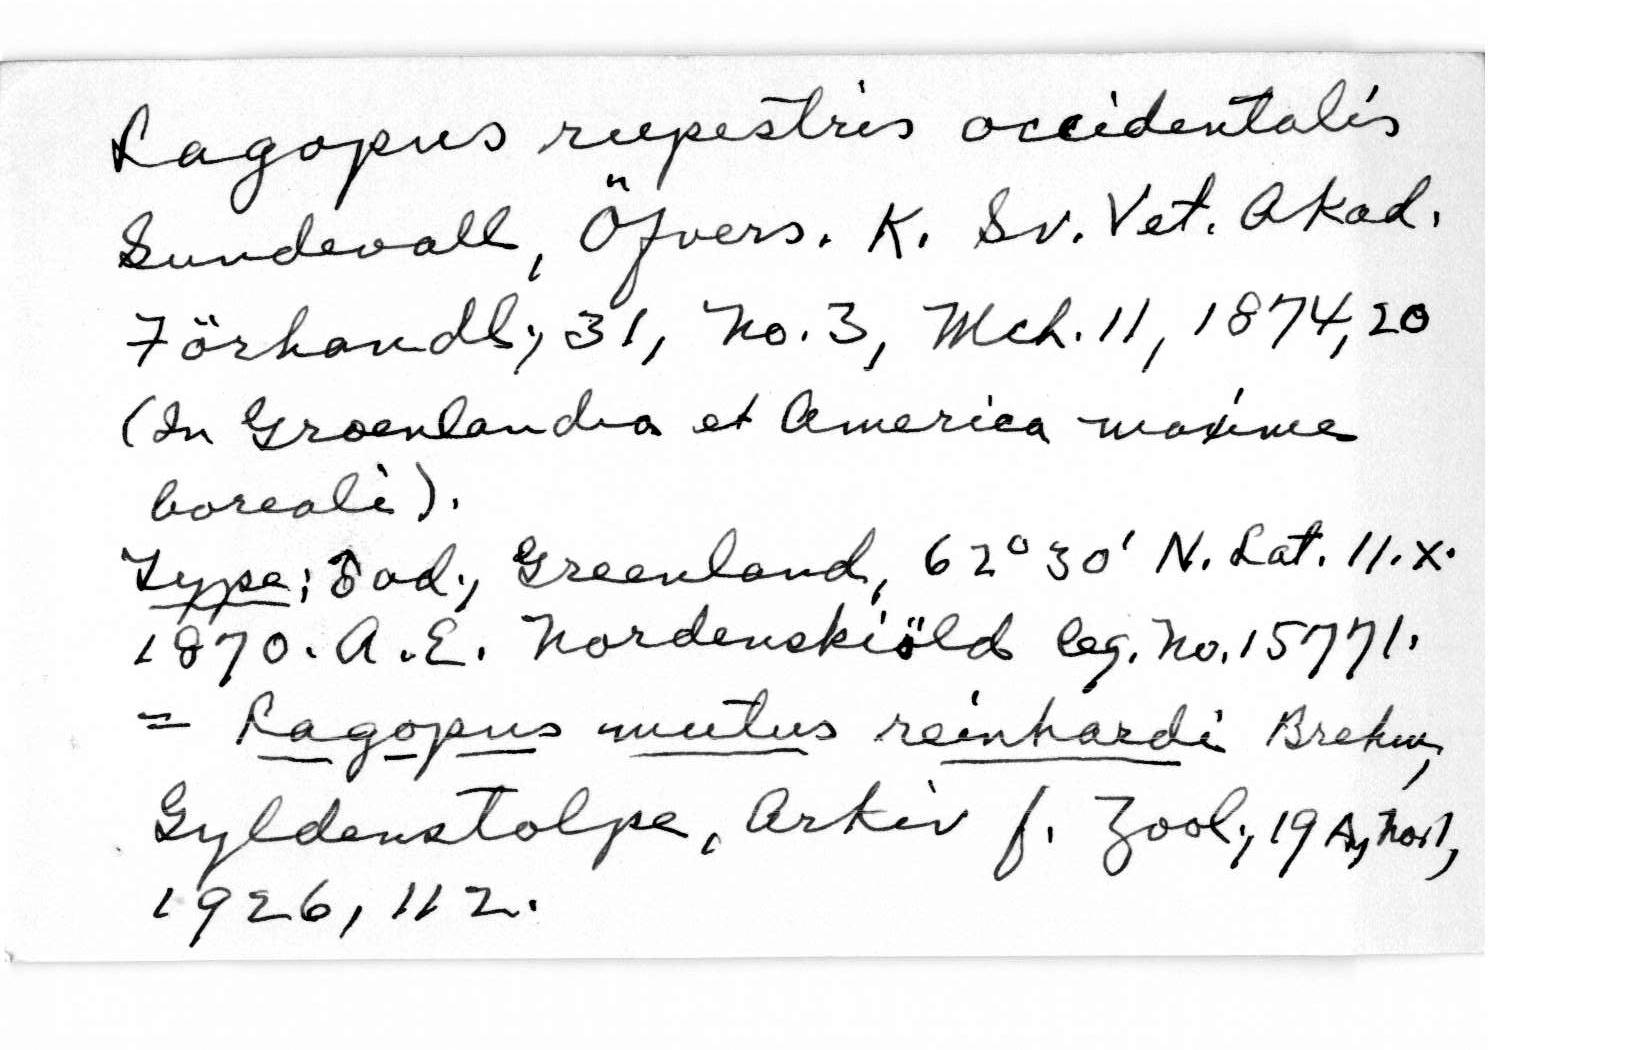 Lagopus rupestris occidentalis
Sundevall, Öfvers. K. Sv. Vet. Akad.
Förhandl., 31, No. 3, Mch. 11, 1874, 20
(In Groenlandia et America maxime
boreali).
Type: ♂ ad., Greenland, 62° 30' N. Lat. 11.X.
1870. A.E. Nordenskiöld leg. No. 15771.
= Lagopus mutus reinhardi Brehm,
Gyldenstolpe, Arkiv f. Zool., 19A, No.1,
1926, 112.